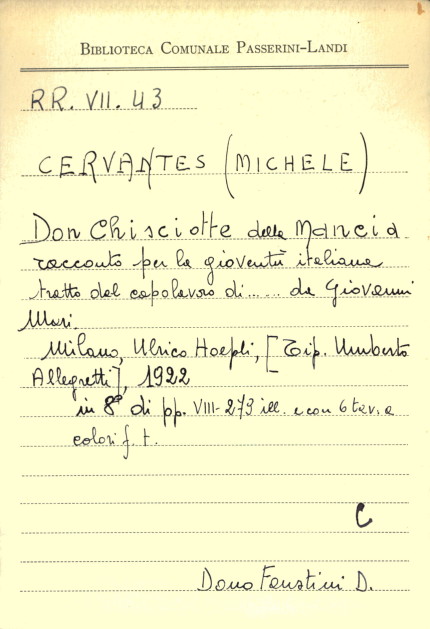 BIBLIOTECA COMUNALE PASSERINI-LANDI
RR. VII. 43
CERVANTES (MICHELE)
Don Chisciotte della Mancia
racconto per la gioventù italiana
tratto dal capolavoro di..... da Giovanni
Mari.
Milano, Ulrico Hoepli, [Tip. Umberto
Allegretti], 1922
in 8° di pp. VIII-279 ill. e con 6 tav. a
colori f. t.
C
Dono Faustini D.